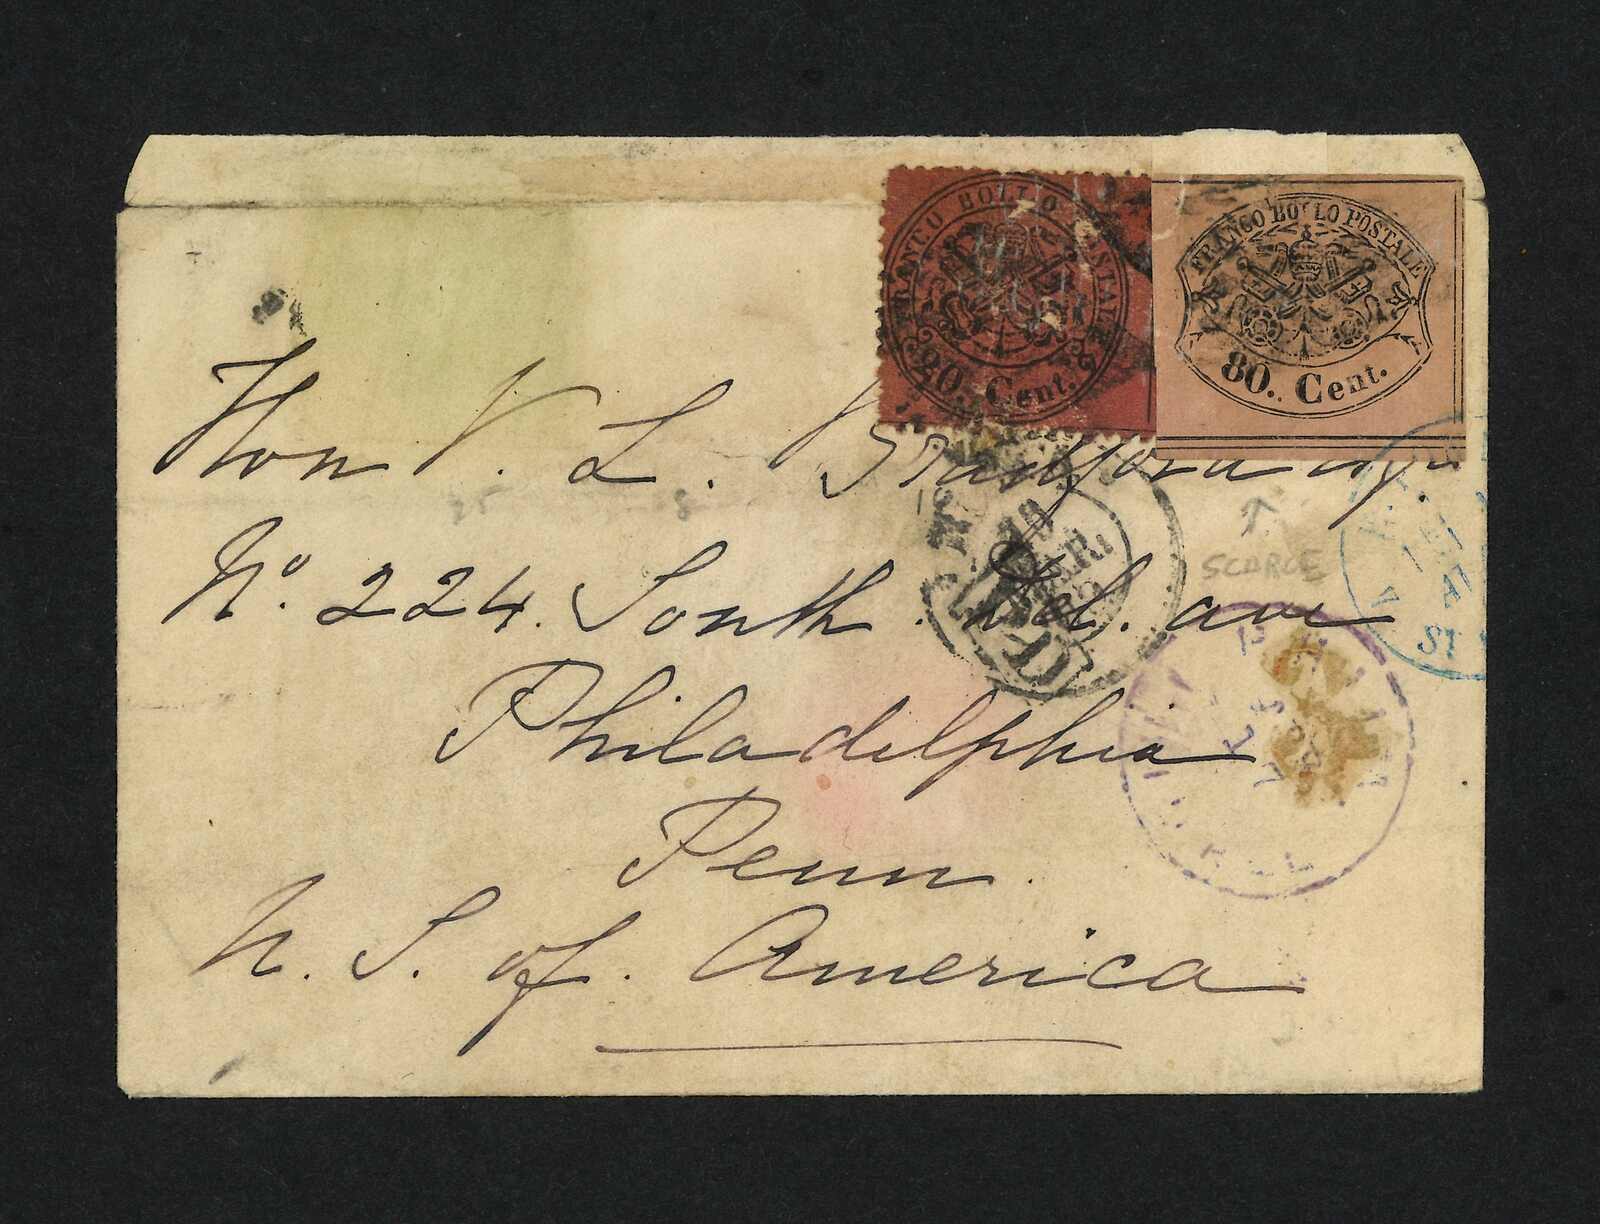 FRANCO BOLLO POSTALE
20. Cent.
FRANCO BOLLO POSTALE
80. Cent.
Hon V. L. Bradford esqr.
No. 224. South. Del. ave
Philadelphia
Penn.
U. S. of. America
SCARCE